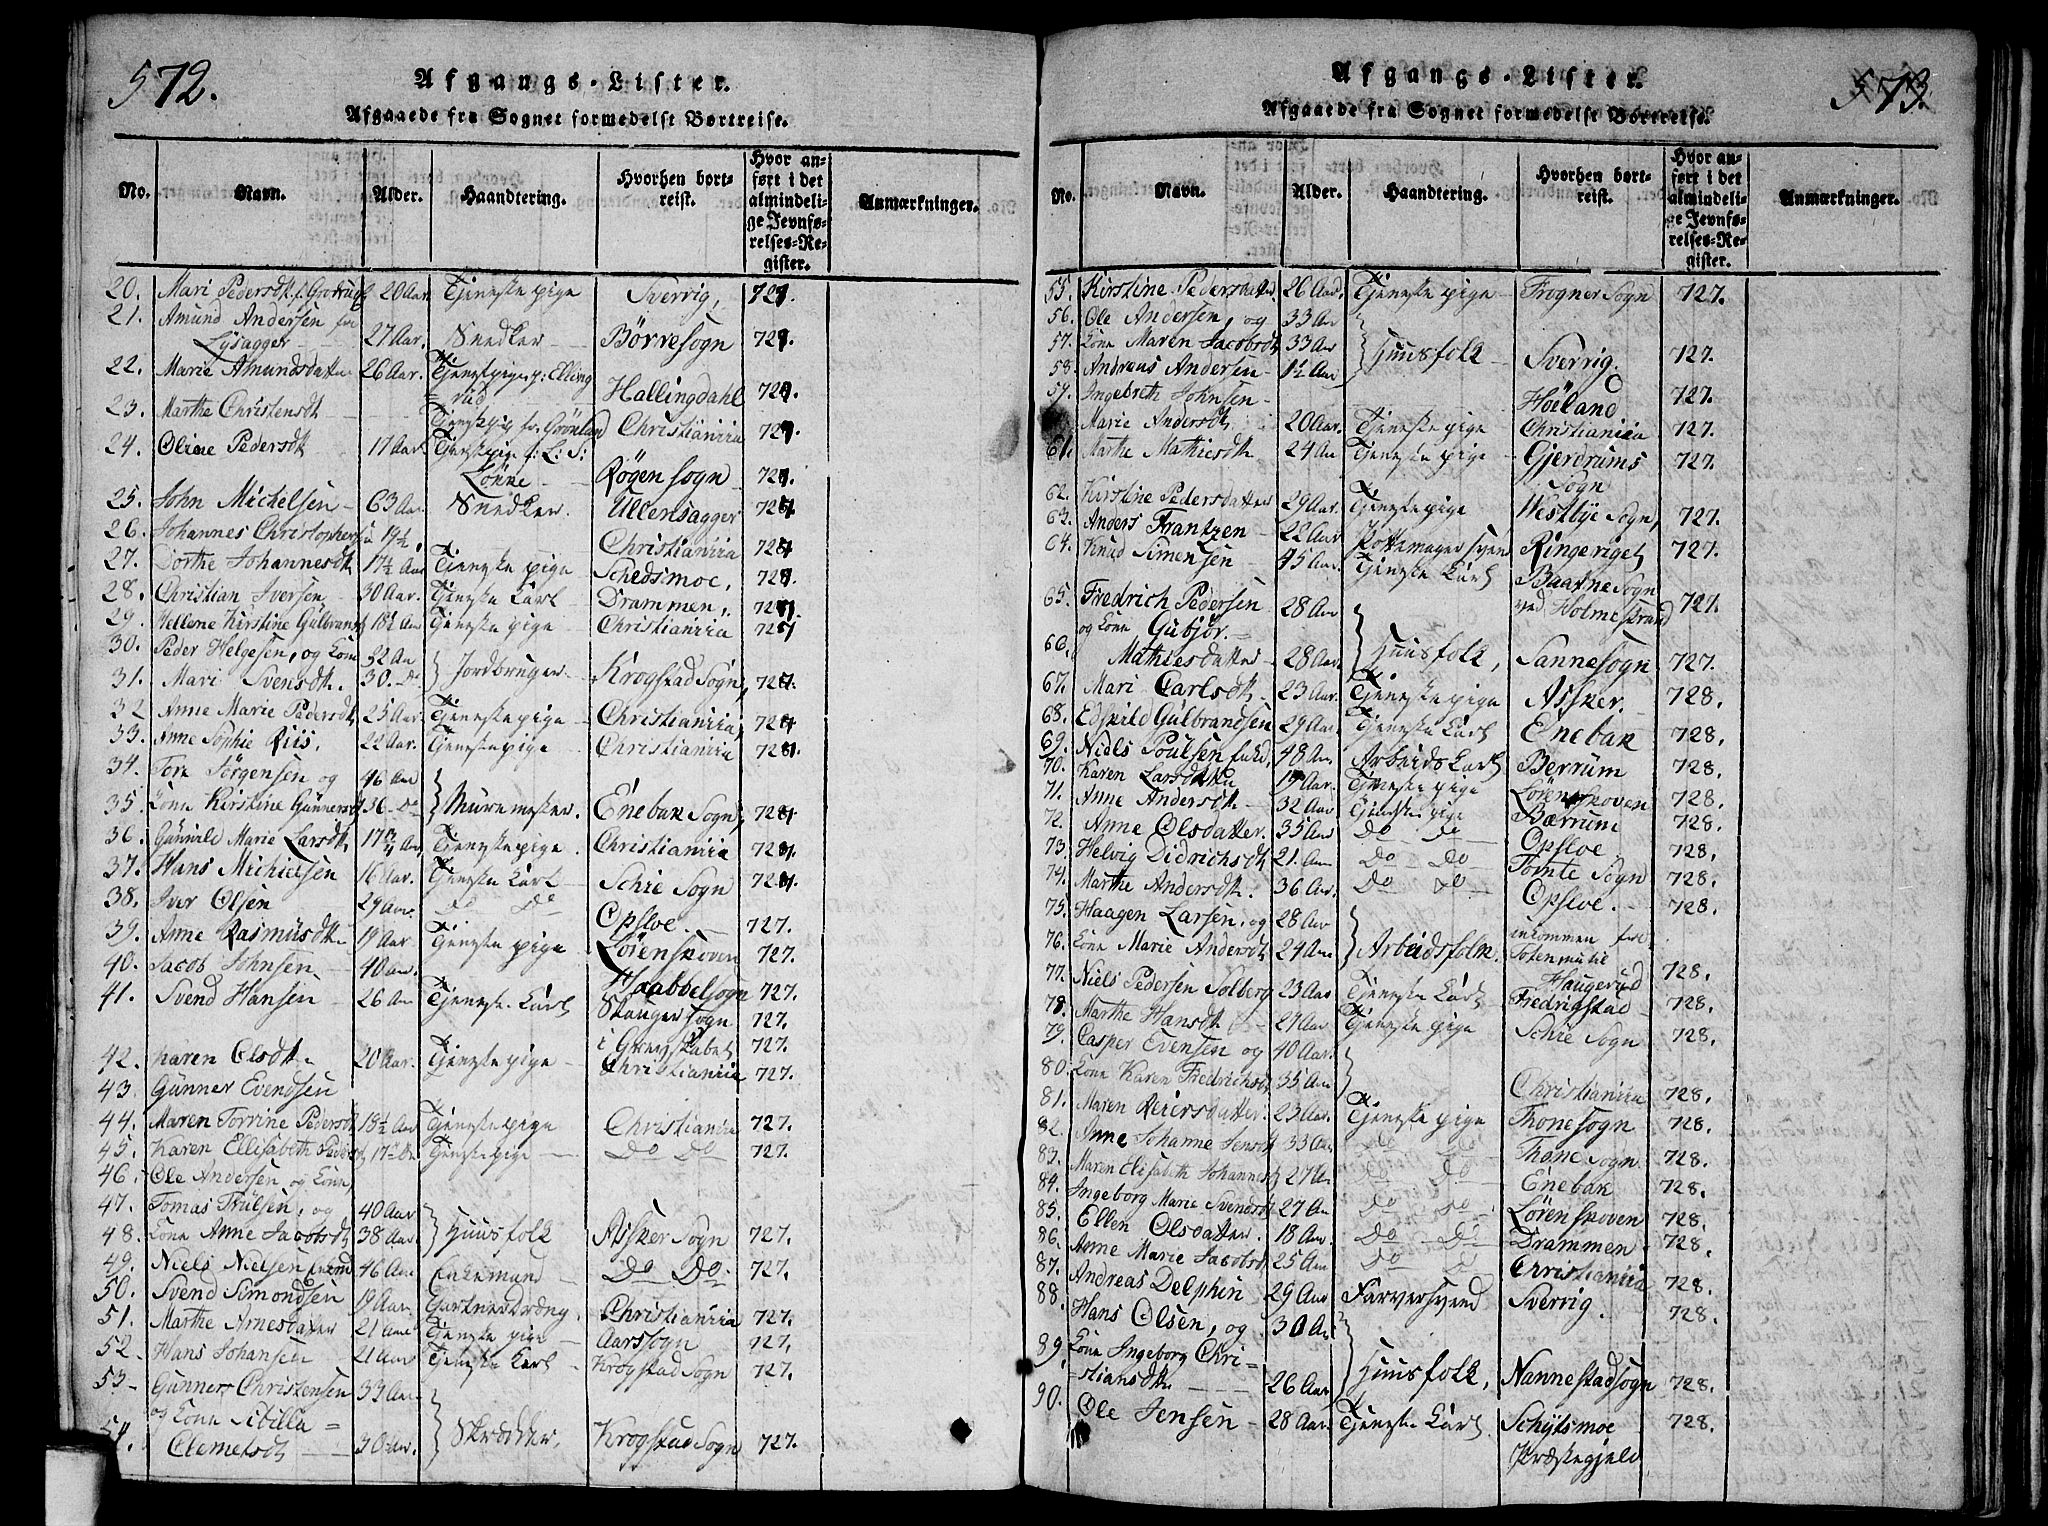 572.
Afgangs-Lister.
Afgaaede fra Sognet formedelst Bortreise.
No. Navn. Alder. Haandtering. Hvorhen bortreist. Hvor anført i det almindelige Jevnførelses-Register. Anmærkninger.
20. Mari Pedersdt. 20 Aar. Tjenestepige Sverrig,
21. Amund Andersen fra
Lysagger 27 Aar. Snedker Børresogn
22. Marie Amundsdatter 26 Aar. Tjenestpige p: Elling
=rud Hallingdahl
23. Marthe Christensdt Tjenestepig fra Grönland Christiania
24. Oline Pedersdt 17 Aar. Tjenestepige f: L: S:
Lönne Røgen sogn
25. John Michelsen 63 Aar Snedker. Ullensagger
26. Johannes Christophersen 19½ Christiania
27. Dorthe Johannesdt 17½ Aar Tjenestepige Schedsmoe,
28. Christian Iversen 30 Aar. Tjeneste Karl Drammen,
29. Hellene Kirstine Gulbransdt 18½ Aar Tjenestepige Christiania
30. Peder Helgesen, og Kone 32 Aar
31. Mari Svensdt. 30 Do Jordbruger Krogstad Sogn,
32 Anne Marie Pedersdt 25 Aar. Tjenestepige Christiania,
33. Anne Sophie Riis. 22 Aar. Tjenestepige Christiania
34. Tore Jörgensen og 46 Aar
35. Kone Kirstine Gunnersdt 36 Do Muremester. Enebak Sogn,
36. Gunnild Marie Larsdt, Tjenestepige. Christiania
37. Hans Michielsen 16 Aar. Tjeneste Karl Schie Sogn
38. Iver Olsen 29 Aar. Do Do Opsloe. 727.
39. Anne Rasmusdt 19 Aar Tjenestepige Lörenskoven 727.
40. Jacob Johnsen 40 Aar. Haabbelsogn 727.
41. Svend Hansen 26 Aar Tjeneste Karl Stanger sogn 727.
i Grevskabet 727.
42. Karen Olsdt. 20 Aar. Tjenestepige Christiania 727.
43. Gunner Evendsen
44. Maren Torrine Pedersdt 18½ Aar Tjenestepige Christiania 727.
45. Karen Ellisabeth Pedersdt 17 Do Tjenestepige Do Do 727.
46. Ole Andersen og Kone,
47. Tomas Trulsen, og 40 Aar
48. Kone Anne Jacobsdt 38 Aar. Huusfolk Assker Sogn 727.
49. Niels Nielsen 46 Aar Enkemand Do Do. 727.
50. Svend Simondsen 19 Aar. Gartnerdreng. Christiania 727.
51. Marthe Arnesdatter 21 Aar Tjenestepige Aarssogn 727.
52. Hans Johansen 21 Aar Tjeneste Karl Krogstad Sogn 727.
53. Gunner Christensen 33 Aar
og Kone Sibilla =
54. Clemetsdt 30 Aar. Skrædder. Krogstad Sogn 727.
573.
Afgangs-Lister.
Afgaaede fra Sognet formedelst Bortreise.
No. Navn. Alder. Haandtering. Hvorhen bortreist. Hvor anført i det almindelige Jevnførelses-Register. Anmærkninger.
55. Kirstine Pedersdatter 26 Aar. Tjenestepige Frogner Sogn 727.
56. Ole Andersen, og 33 Aar
57. Kone Maren Jacobsdt 33 Aar Huusfolk Sverrig. 727.
58. Andreas Andersen 1½ Aar
59. Ingebreth Johnsen Høeland. 727.
Marie Andersdt. 20 Aar. Tjenestepige Christiania 727.
61. Marthe Mathiesdt 24 Aar Tjenestepige Gjerdrums 727.
Sogn
62. Kirstine Pedersdatter 29 Aar. Tjenestepige Westbye Sogn, 727.
63. Anders Frantzen 22 Aar Pottemager Svend Ringeriget, 727.
64. Knud Simensen 45 Aar. Tjeneste Karl Baatne Sogn
65. Fredrich Pedersen 28 Aar ved Holmestrand 727.
og Kone Gubjör.=
66. Mathiesdatter 28 Aar. Huusfolk, Sannesogn 727.
67. Mari Carlsdt 23 Aar. Tjenestepige Assker. 728.
68. Edskild Gulbrandsen 29 Aar Tjeneste Karl Enebak 728.
69. Niels Poulsen 48 Aar Arbeids Karl Berrum 728.
70. Karen Larsdt 19 Aar. Tjenestepige Lörenskoven 728.
71. Anne Andersdt 32 Aar Tjenestepige Bærrum 728.
72. Anne Olsdatter. 35 Aar. Do Do Opsloe 728.
73. Helvig Didrichsdt 21. Aar Do Do Tomte Sogn 728.
74. Marthe Andersdt. 36 Aar. Do Do Opsloe. 728.
75. Haagen Larsen, og 28 Aar
76. Kone Marie Andersdt 24 Aar Arbeidsfolk. 728.
Haugerud
77. Niels Pedersen Solberg 23 Aar Tjeneste Karl Fredrigstad 728.
78. Marthe Hansdt 24 Aar Tjenestepige Schie Sogn 728.
79. Casper Evensen og 40 Aar.
80. Kone Karen Fredrichsdt 35 Aar Christiania 728.
81. Maren Reiersdatter. 23 Aar. Tjenestepige Thonesogn 728.
82. Anne Johanne Jensdt 33 Aar Do Do Thone Sogn 728.
83. Maren Elisabeth Johannesdt 27 Aar Do Do Enebak 728.
84. Ingeborg Marie Svendsdt 27 Aar Do Do Lörenskoven 728.
85. Ellen Olsdatter. 18 Aar. Do Do Drammen 728.
86. Anne Marie Jacobsdt 25 Aar Do Do Christiania 728.
87. Andreas Delphin 29 Aar Farversvend Sverrig. 728.
88. Hans Olsen, og 30 Aar
89. Kone Ingeborg Chri=
=stiansdt. 26 Aar Huusfolk, Nannestadsogn 728.
90. Ole Jensen 28 Aar. Tjeneste Karl. Schijtsmoe 728.
Præstegjeld